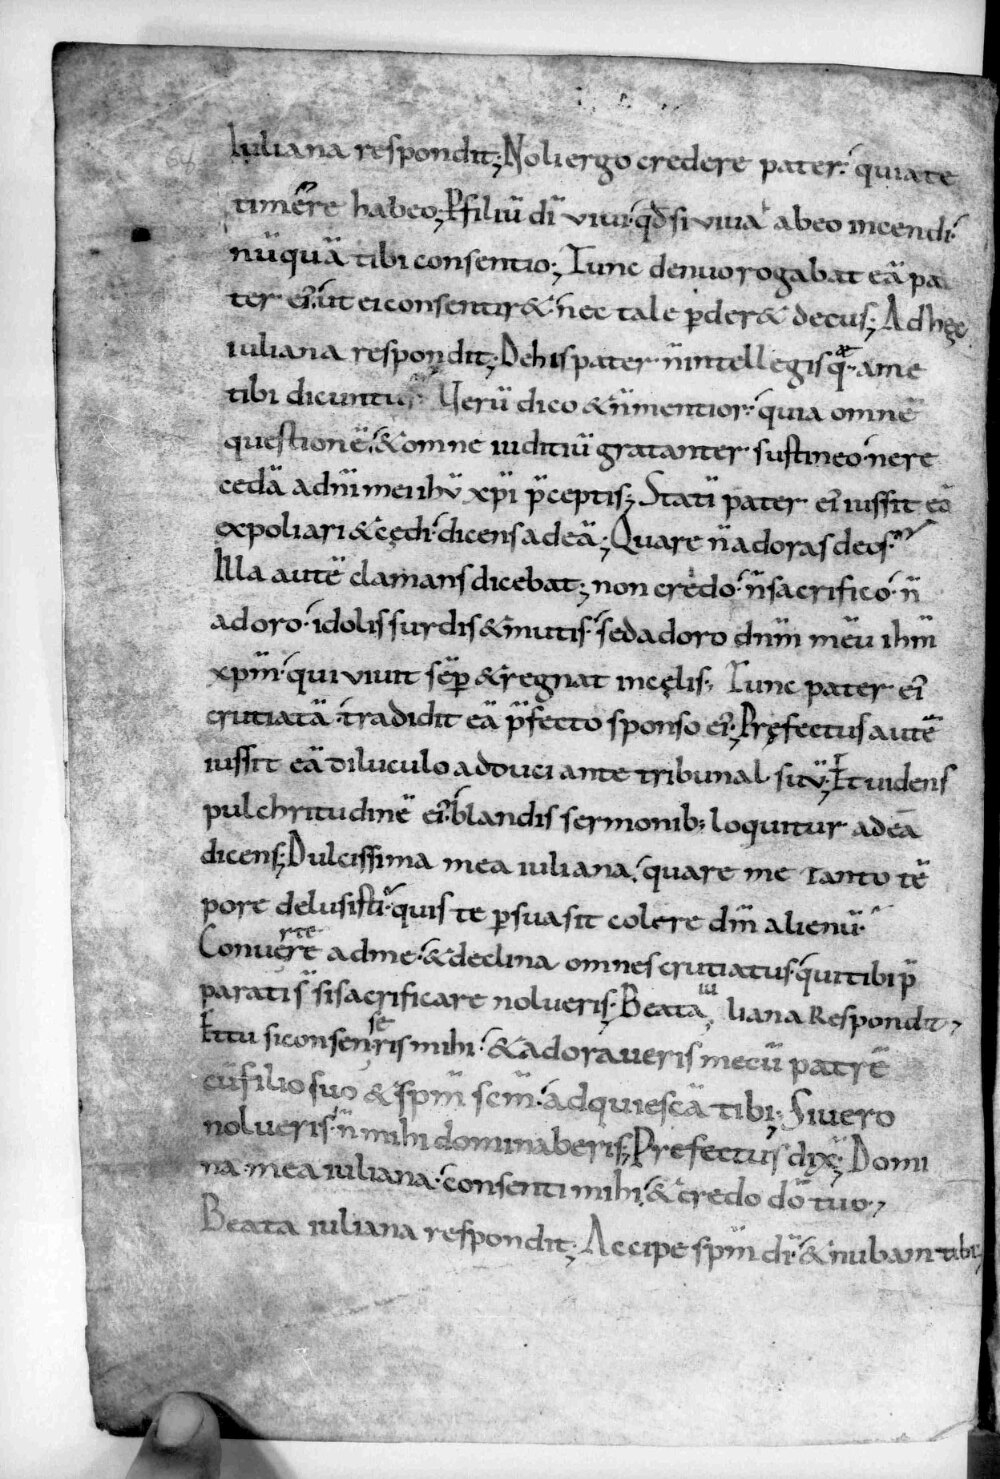 Iuliana respondit; Noli ergo credere pater· quia te
timere habeo; P filiū dī vivi· qđ si viva abeo incendi·
nūquā tibi consentio; Tunc denuo rogabat eā pa
ter eiꝰ ut ei consentir&· nec tale ꝑder& decus; Ad hęc
iuliana respondit; De his pater n̄ intellegis q̄· a me
tibi dicuntur Verū dico & n̄ mentior· quia omnē
questionē· & omne iuditiū gratanter sustineo· ne re
cedā a dnī mei ihū xp̄i p̄ceptis; Statī pater eiꝰ iussit eā
expoliari & cędi· dicens ad eā; Quare n̄ adoras deos·
Illa autē clamans dicebat; non credo· n̄ sacrifico· n̄
adoro· idolis surdis & mutis· sed adoro dnm̄ mēu ihm̄
xpm̄· qui vivit sēꝑ & regnat in cęlis; Tunc pater eiꝰ
crutiatā tradidit eā p̄fecto sponso eiꝰ; Pręfectus autē
iussit eā diluculo adduci ante tribunal suū; Et videns
pulchritudinē eiꝰ· blandis sermonib; loquitur ad eā
dicens; Dulcissima mea iuliana· quare me tanto tē
pore delusisti· quis te ꝑsuasit colere dm̄ alienū·
Convertere ad me· & declina omnes crutiatus· qui tibi p̄
parati s̄ si sacrificare nolueris; Beata iuliana Respondit;
Et tu si consenseris mihi· & adoraveris mecū patrē
cū filio suo & spm̄ scm̄· adquiescā tibi; Si vero
nolueris· n̄ mihi dominaberis; Prefectus dix̄; Domi
na mea iuliana· consenti mihi· & credo dō tuo;
Beata iuliana respondit; Accipe spm̄ dī· & nubam tibi;